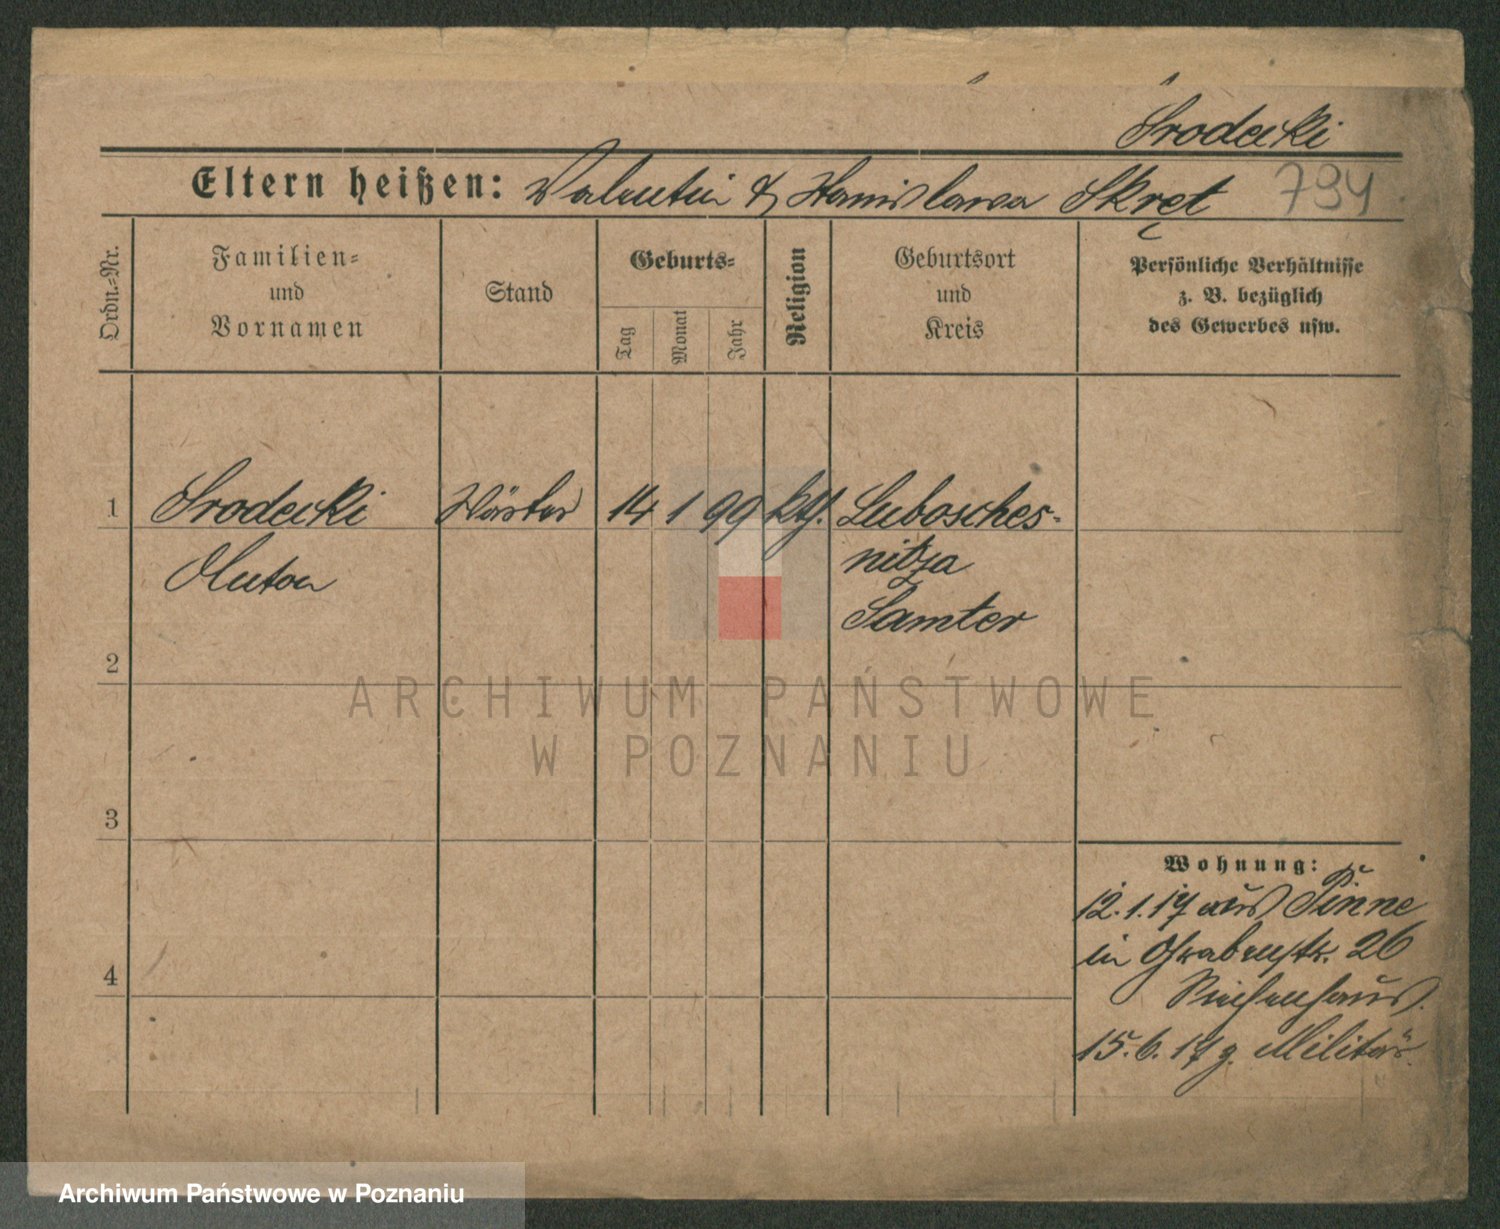 Srodecki
Eltern heißen: Valentin & Stanislawa Skręt 794
Ordn.-Nr.
Familien-
und
Vornamen
Stand
Geburts-
Tag
Monat
Jahr
Religion
Geburtsort
und
Kreis
Persönliche Verhältnisse
z. B. bezüglich
des Gewerbes usw.
1 Srodecki Wärter 14 1 99 kth. Lubosches-
Anton nitza
Samter
2
3
4
Wohnung:
12.1.17 aus Pinne
in Grabenstr. 26
Siechenhaus.
15.6.17 z. Militär.
ARCHIWUM PAŃSTWOWE
W POZNANIU
Archiwum Państwowe w Poznaniu